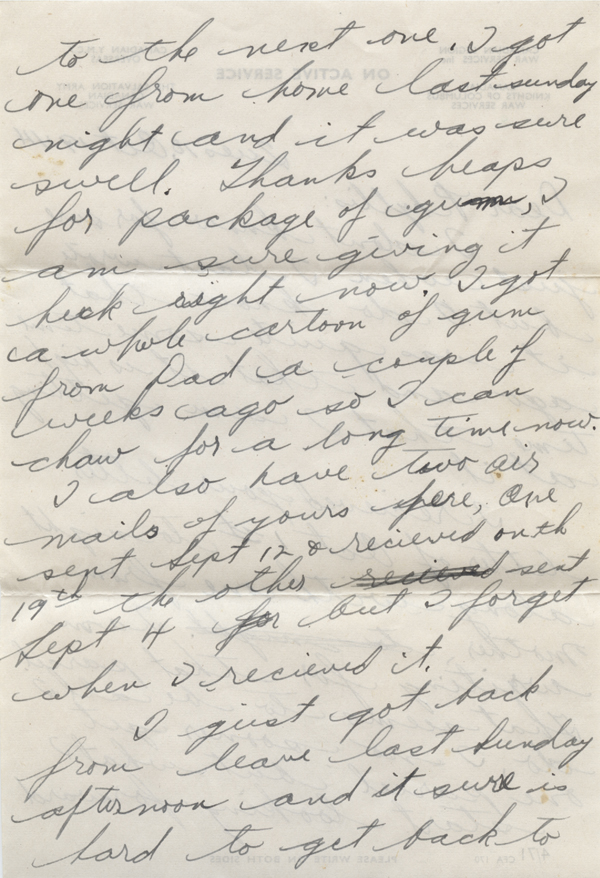 to the next one. I got
one from home last sunday
night and it was sure
swell. Thanks heaps
for package of gum, I
am sure giving it
heck right now. I got
a whole cartoon of gum
from Dad a couple of
weeks ago so I can
chaw for a long time now.
I also have two air
mails of yours here, One
sent Sept 12 & recieved on th
19th the other recieved sent
Sept 4 for but I forget
when I recieved it.
I just got back
from leave last Sunday
afternoon and it sure is
hard to get back to